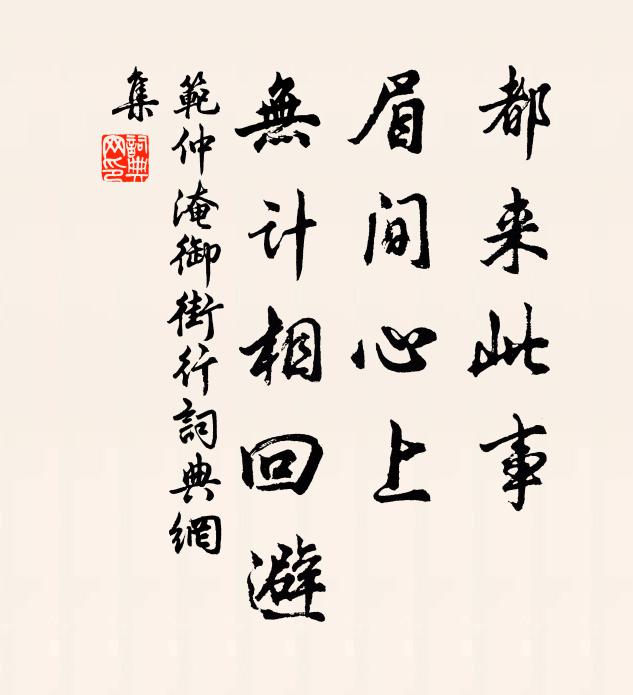 都来此事
眉间心上
無计相回避
範仲淹御街行詞典網
集
詞典
网印